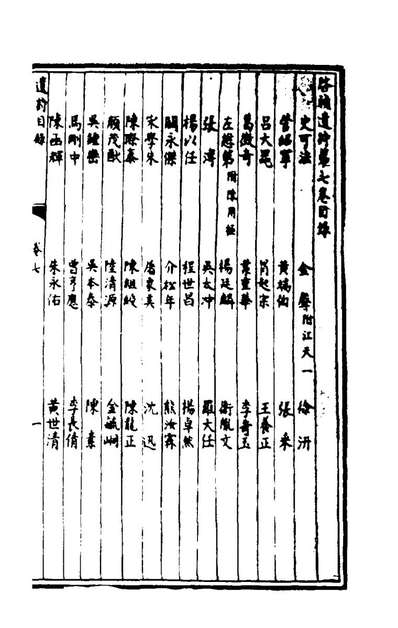 啓禎遺詩第七卷目錄
史可法 金聲附江天一 徐汧
管紹寧 黃端伯 張采
呂大器 冏起宗 王養正
葛徵奇 葉重華 李奇玉
左懋第附陳用極 楊廷麟 衛胤文
張溥 吳太冲 羅大任
楊以任 程世昌 楊卓然
關永傑 介松年 熊汝霖
宋學朱 唐良 沈迅
陳際泰 陳組綬 陳龍正
顧茂猷 陸清源 金毓峒
吳鍾巒 吳本泰 陳素
馬剛中 曹亨應 李長倩
陳函輝 朱永佑 黃世清
遺詩目錄 卷七 一